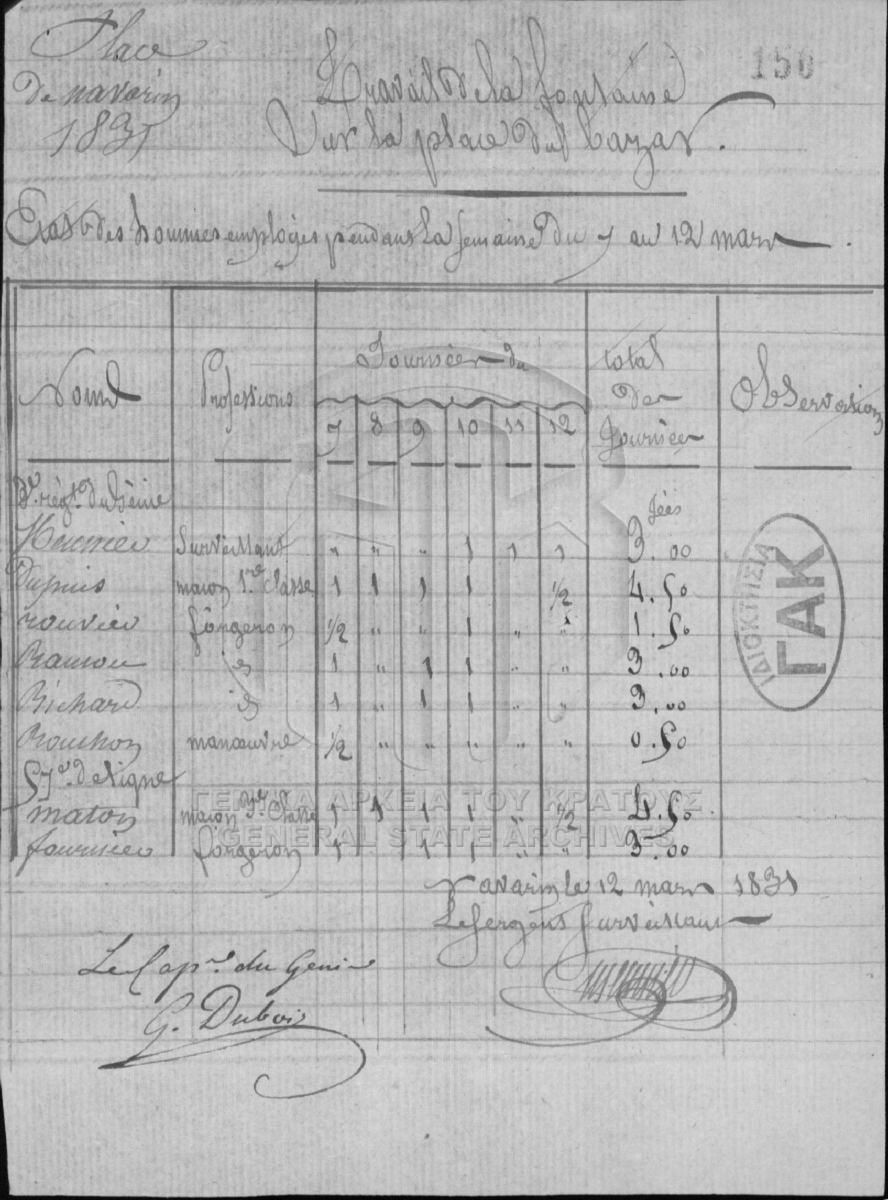 Place
de navarin
1831
150
Travail de la fontaine
Sur la place du bazar.
Etat des hommes employés pendant la Semaine du 7 au 12 mars.
Noms Professions Journées du total des Journées Observations
7 8 9 10 11 12
3e. régt. du Génie
jées
Meunier Surveillant " " " 1 1 1 3.00
Dupuis maçon 1re classe 1 1 1 1 1/2 4.50
rouvier forgeron 1/2 " " 1 " " 1.50
Ramon id 1 " 1 1 " " 3.00
Richard id 1 " 1 1 " " 3.00
Rouchon manœuvre 1/2 " " " " " 0.50
57e. de ligne
maton maçon 3e. classe 1 1 1 1 " 1/2 4.50
fournier forgeron 1 1 1 " " 3.00
Navarin le 12 mars 1831
Le sergent Surveillant
Le Capne. du Génie
G. Dubois
ΙΔΙΟΚΤΗΣΙΑ
ΓΑΚ
ΓΕΝΙΚΑ ΑΡΧΕΙΑ ΤΟΥ ΚΡΑΤΟΥΣ
GENERAL STATE ARCHIVES